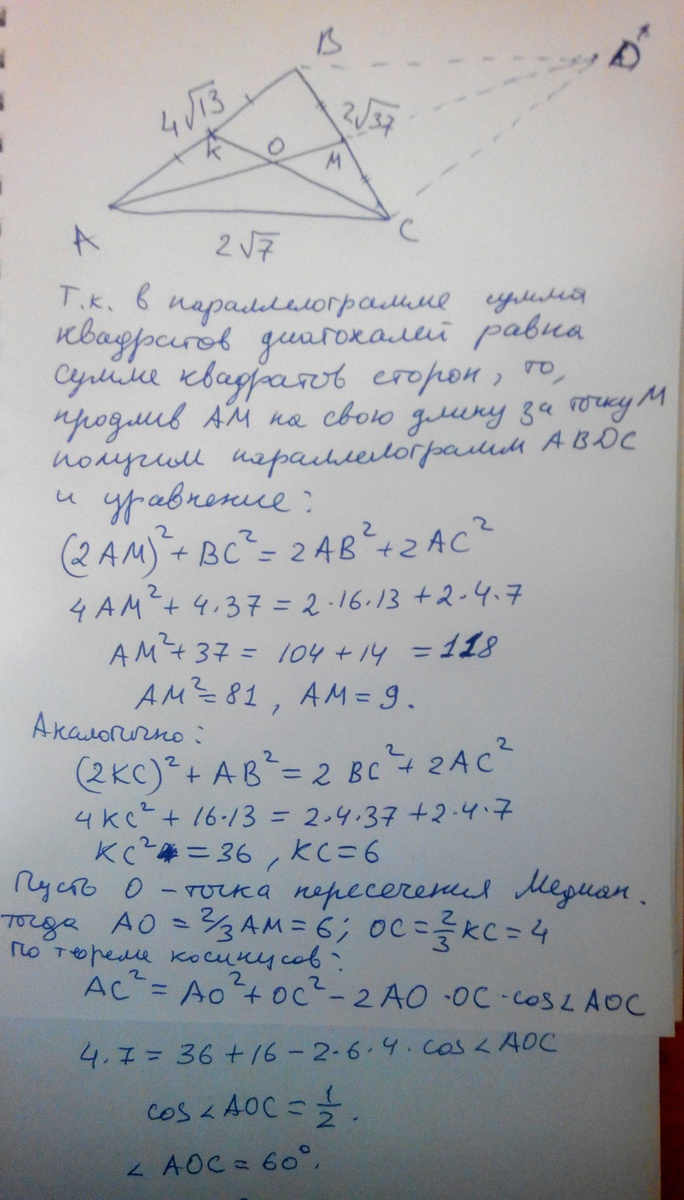 B
D
4√13
2√37
K
O
M
A
C
2√7
Т.к. в параллелограмме сумма
квадратов диагоналей равна
сумме квадратов сторон, то,
продлив AM на свою длину за точку M
получим параллелограмм ABDC
и уравнение:
(2AM)² + BC² = 2AB² + 2AC²
4AM² + 4·37 = 2·16·13 + 2·4·7
AM² + 37 = 104 + 14 = 118
AM² = 81, AM = 9.
Аналогично:
(2KC)² + AB² = 2BC² + 2AC²
4KC² + 16·13 = 2·4·37 + 2·4·7
KC² = 36, KC = 6
Пусть O – точка пересечения медиан.
тогда AO = 2/3 AM = 6; OC = 2/3 KC = 4
По теореме косинусов:
AC² = AO² + OC² − 2AO·OC·cos∠AOC
4·7 = 36 + 16 − 2·6·4·cos∠AOC
cos∠AOC = 1/2.
∠AOC = 60°.